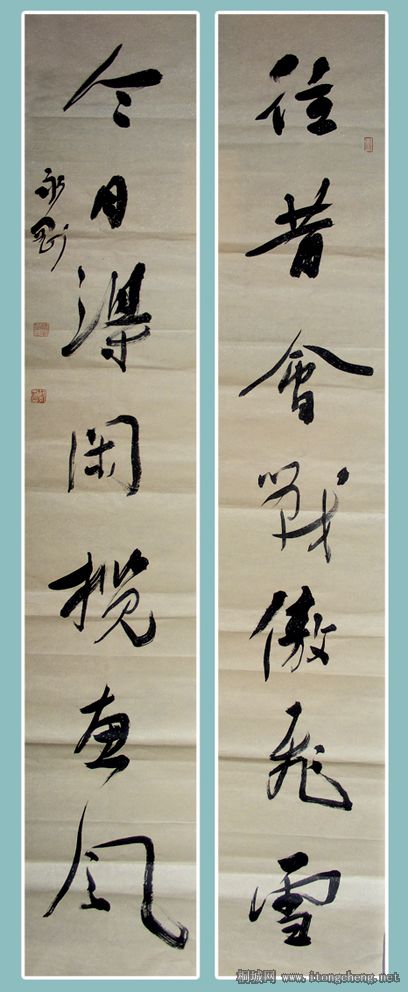 往昔會戰傲飛雪
今日得闲揽惠风
永刚
桐城网 www.itongcheng.net